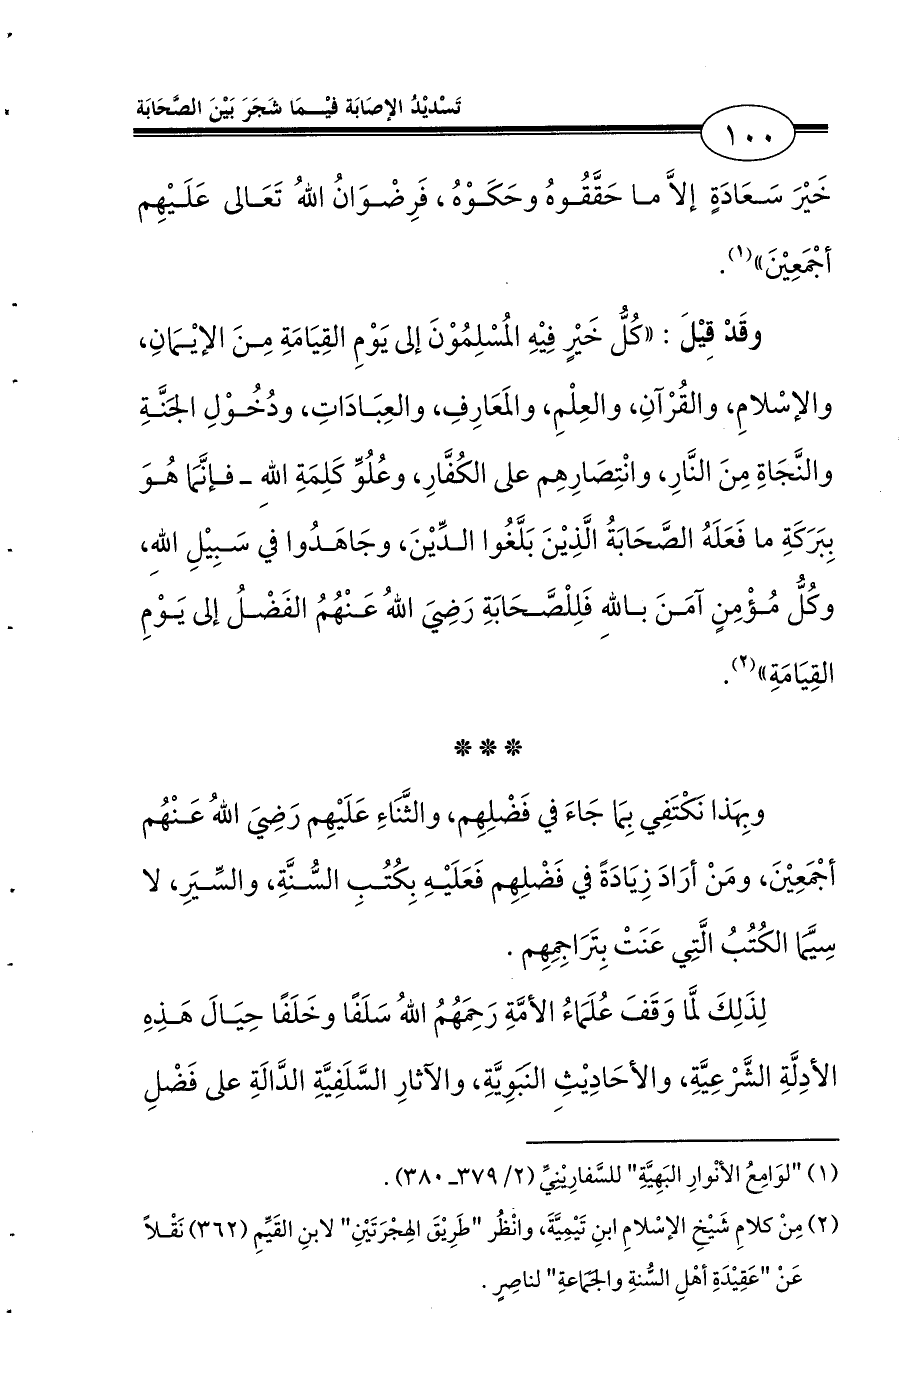 تَسْدِيْدُ الإصَابَة فيْـمَا شَجَرَ بَيْنَ الصَّحَابَة
١٠٠
خَيْرَ سَعَادَةٍ إلاَّ ما حَقَّقُوهُ وحَكَوْهُ، فَرِضْوَانُ اللهُ تَعَالى عَلَيْهِم
أجْمَعِيْنَ»(١).
وقَدْ قِيْلَ : «كُلُّ خَيْرٍ فِيْهِ المُسْلِمُوْنَ إلى يَوْمِ القِيَامَةِ مِنَ الإيْمانِ،
والإسْلامِ، والقُرْآنِ، والعِلْمِ، والمَعَارِفِ، والعِبَادَاتِ، ودُخُوْلِ الجَنَّةِ
والنَّجَاةِ مِنَ النَّارِ، وانْتِصَارِهِم على الكُفَّارِ، وعُلُوِّ كَلِمَةِ اللهِ ـ فإنَّمَا هُوَ
بِبَرَكَةِ ما فَعَلَهُ الصَّحَابَةُ الَّذِيْنَ بَلَّغُوا الدِّيْنَ، وجَاهَدُوا في سَبِيْلِ اللهِ،
وكُلُّ مُؤْمِنٍ آمَنَ باللهِ فَلِلْصَّحَابَةِ رَضِيَ اللهُ عَنْهُمُ الفَضْلُ إلى يَوْمِ
القِيَامَةِ»(٢).
* * *
وبِهَذا نَكْتَفِي بِمَا جَاءَ في فَضْلِهِم، والثَّنَاءِ عَلَيْهِم رَضِيَ اللهُ عَنْهُم
أجْمَعِيْنَ، ومَنْ أرَادَ زِيَادَةً في فَضْلِهِم فَعَلَيْهِ بِكُتُبِ السُّنَّةِ، والسِّيَرِ، لا
سِيَّمَا الكُتُبُ الَّتِي عَنَتْ بِتَرَاجِمِهِم .
لِذَلِكَ لمَّا وَقَفَ عُلَمَاءُ الأمَّةِ رَحِمَهُمُ اللهُ سَلَفًا وخَلَفًا حِيَالَ هَذِهِ
الأدِلَّةِ الشَّرْعِيَّةِ، والأحَادِيْثِ النَبَوِيَّةِ، والآثارِ السَّلَفِيَّةِ الدَّالَةِ على فَضْلِ
(١) "لوَامِعُ الأنْوارِ البَهِيَّةِ" للسَّفارِيْنِيِّ (٢/ ٣٧٩ـ ٣٨٠) .
(٢) مِنْ كلامِ شَيْخِ الإسْلامِ ابنِ تَيْمِيَّةَ، وانْظُر "طَرِيْقَ الهِجْرَتَيْنِ" لابنِ القَيِّمِ (٣٦٢) نَقْلاً
عَنْ "عَقِيْدَةِ أهْلِ السُّنةِ والجَمَاعةِ" لناصِرٍ .